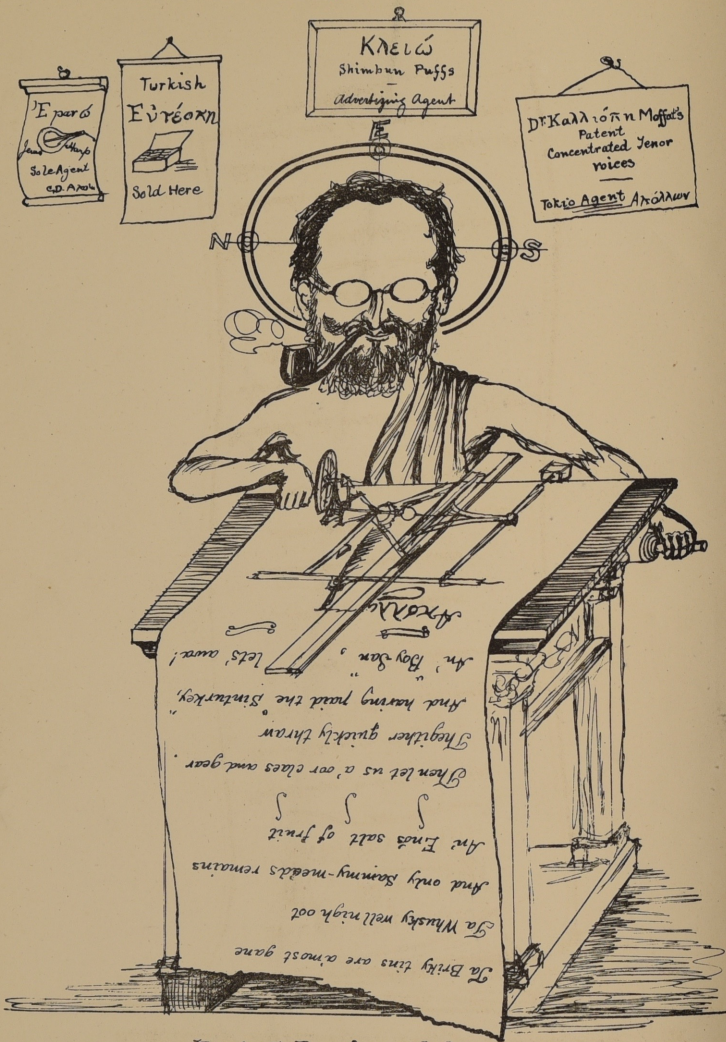 Ἐρατώ
Jews Harp
Sole Agent
Turkish
Εὐτέρπη
Sold Here
Κλειώ
Shimbun Puffs
Advertizing Agent
Dr. Καλλιόπη Moffat's
Patent
Concentrated Tenor
voices
Tokio Agent Απόλλων
E
N
S
Ta Briky tins are a'most gane
Ta Whusky well nigh oot
And only Sammy-meads remains
An' Eno's salt of fruit
Then let us a' oor claes and gear
Thegither quickly thraw
And having paid the "Sinturkey,"
An' "Boy San", lets' awa!